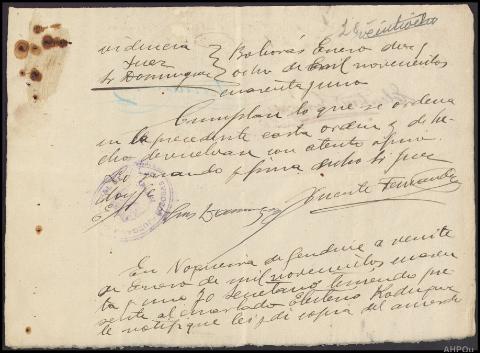 28 veintiocho
Providencia
Juez
Sr Dominguez
Boborás Enero diez y
ocho de mil novecientos
cuarenta y uno
Cumplase lo que se ordena
en la precedente carta orden y
devuelvase con atento oficio
Lo mando y firma dicho Sr Juez
doy fe
Luis Dominguez
Vicente Fernandez
En Nogueira de a veinte
de Enero de mil novecientos cuaren
ta y uno yo Secretario teniendo pre
sente al Eliseo Rodriguez
le notifique lei y di copia del
AHPOu